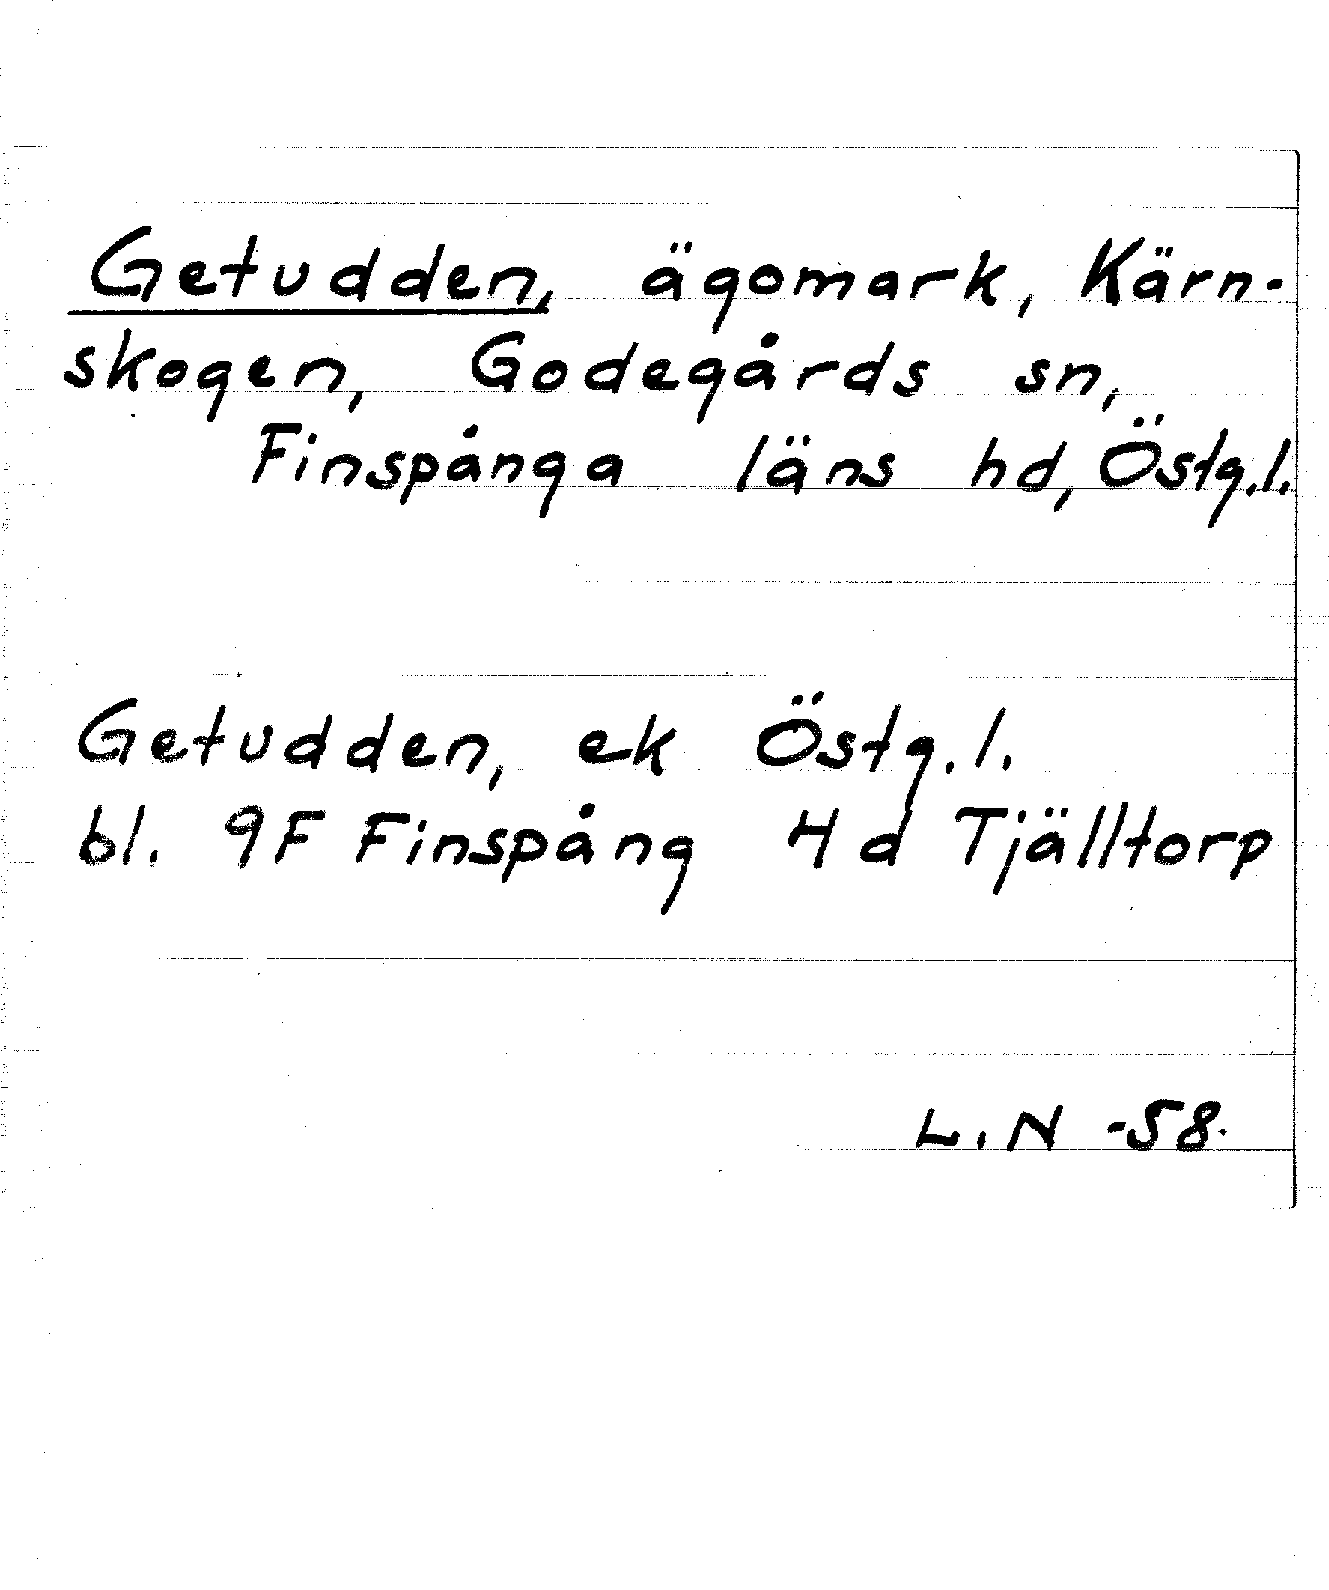 Getudden, ägomark, Kärn-
skogen, Godegårds sn,
Finspånga läns hd, Östg.l.
Getudden, ek Östg.l.
bl. 9F Finspång 4d Tjälltorp
L.N -58.